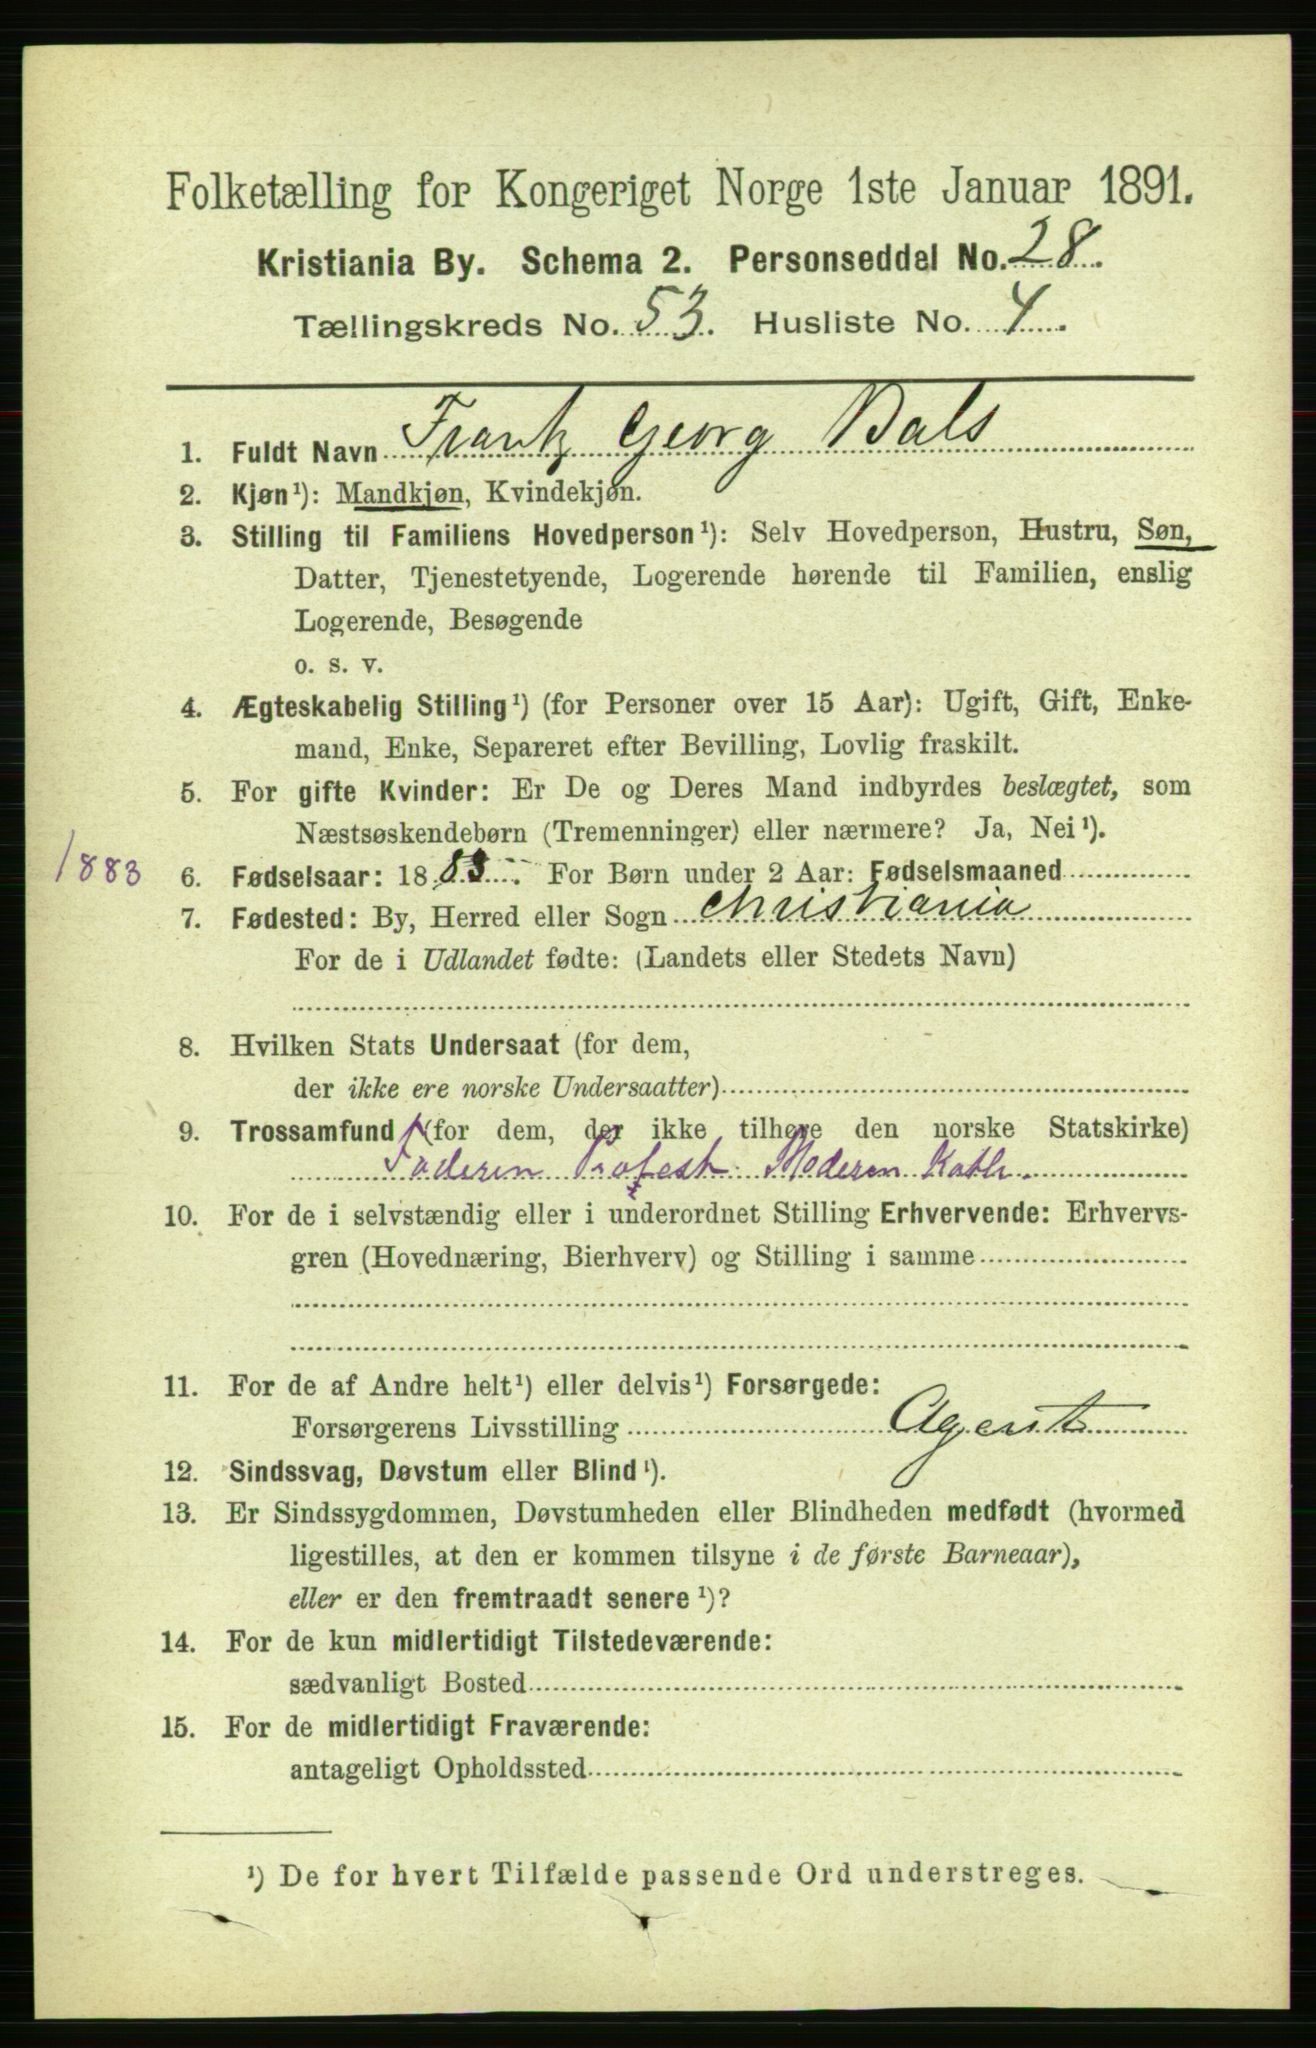 Folketælling for Kongeriget Norge 1ste Januar 1891.
Kristiania By. Schema 2. Personseddel No. 28.
Tællingskreds No. 53. Husliste No. 4.
1. Fuldt Navn Frantz Georg Bals
2. Kjøn¹): Mandkjøn, Kvindekjøn.
3. Stilling til Familiens Hovedperson¹): Selv Hovedperson, Hustru, Søn,
Datter, Tjenestetyende, Logerende hørende til Familien, enslig
Logerende, Besøgende
o. s. v.
4. Ægteskabelig Stilling¹) (for Personer over 15 Aar): Ugift, Gift, Enke-
mand, Enke, Separeret efter Bevilling, Lovlig fraskilt.
5. For gifte Kvinder: Er De og Deres Mand indbyrdes beslægtet, som
Næstsøskendebørn (Tremenninger) eller nærmere? Ja, Nei¹).
1883 6. Fødselsaar: 1883. For Børn under 2 Aar: Fødselsmaaned
7. Fødested: By, Herred eller Sogn Christiania
For de i Udlandet fødte: (Landets eller Stedets Navn)
8. Hvilken Stats Undersaat (for dem,
der ikke ere norske Undersaatter)
9. Trossamfund (for dem, der ikke tilhøre den norske Statskirke)
Faderen Protest. Moderen Kath.
10. For de i selvstændig eller i underordnet Stilling Erhvervende: Erhvervs-
gren (Hovednæring, Bierhverv) og Stilling i samme
11. For de af Andre helt¹) eller delvis¹) Forsørgede:
Forsørgerens Livsstilling Agent
12. Sindssvag, Døvstum eller Blind¹).
13. Er Sindssygdommen, Døvstumheden eller Blindheden medfødt (hvormed
ligestilles, at den er kommen tilsyne i de første Barneaar),
eller er den fremtraadt senere¹)?
14. For de kun midlertidigt Tilstedeværende:
sædvanligt Bosted
15. For de midlertidigt Fraværende:
antageligt Opholdssted
¹) De for hvert Tilfælde passende Ord understreges.